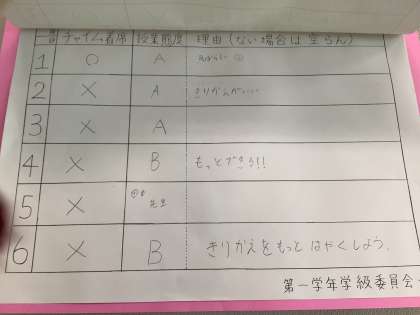 チャイム着席 授業態度 理由(ない場合は空らん)
1 ○ A
2 × A きりかえがいい
3 × A
4 × B もっとできる!!
5 × 先生
6 × B きりかえをもっとはやくしよう。
第一学年学級委員会